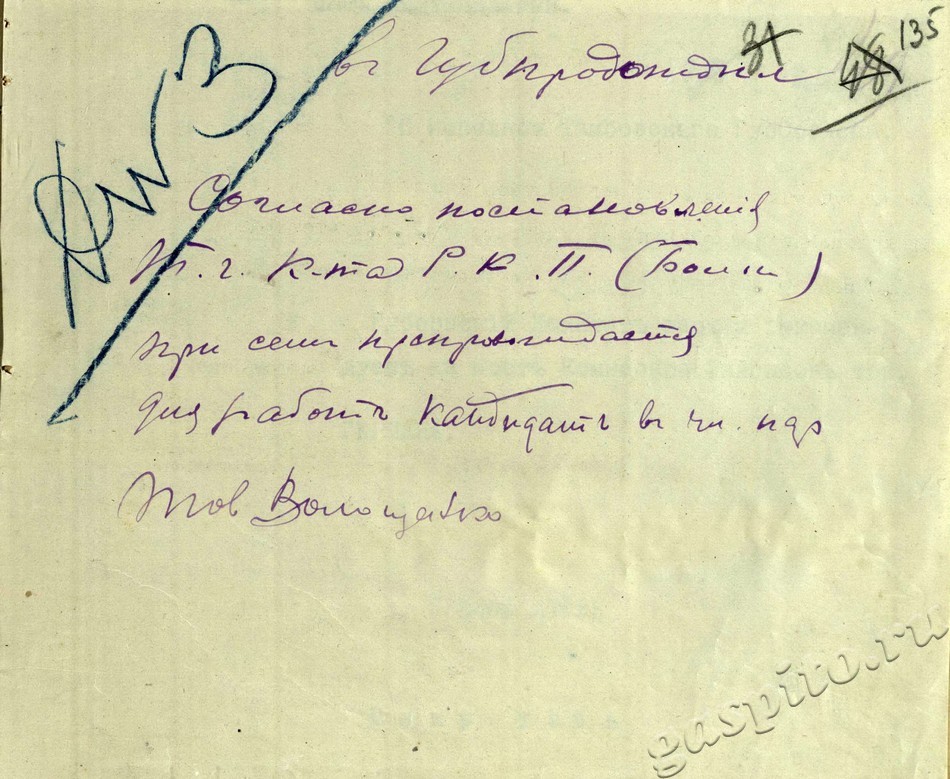 31 48 135
въ
Согласно постановления
Т. г. К-та Р. К. П. (Больш)
при семъ препровождается
для работъ кандидатъ въ чл. пар
Тов Волощенко
gaspito.ru